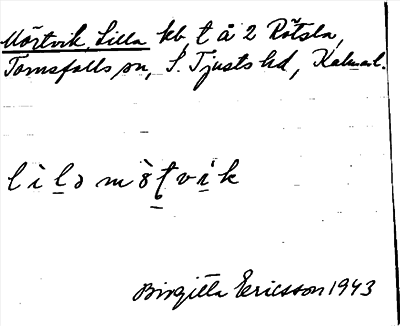 Mörtvik, Lilla kb t å 2 Rötsla,
Törnsfalls sn, S. Tjusts hd, Kalm.l.
lìḷə mö̀ṭvi̱k
Birgitta Ericsson 1943